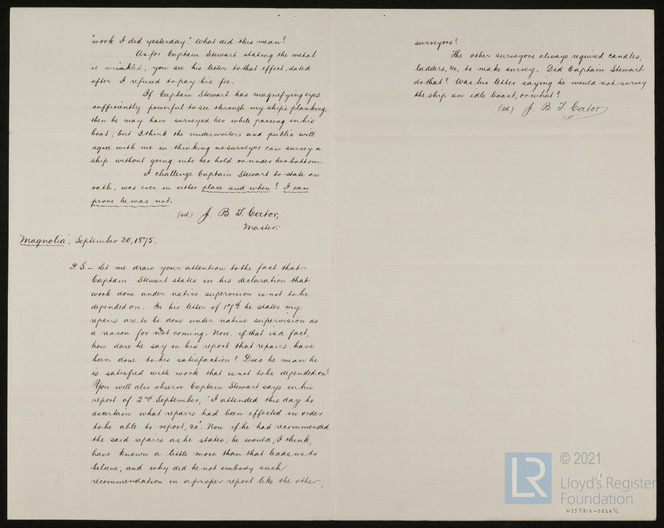 "work I did yesterday." What did this mean?
As for Captain Stewart stating the metal
is wrinkled, you see his letter to that effect, dated
after I refused to pay his fee.
If Captain Stewart has magnifying eyes
sufficiently powerful to see through my ship's planking,
then he may have surveyed her while passing in his
boat; but I think the underwriters and public will
agree with me in thinking no surveyor can survey a
ship without going into her hold or under her bottom.
I challenge Captain Stewart to state on
oath, was ever in either place and when? I can
prove he was not.
(sd) J. B. T. Cator,
Master.
"Magnolia", September 30, 1875.
P.S.— Let me draw your attention to the fact that
Captain Stewart states in his declaration that
work done under native supervision is not to be
depended on. In his letter of he states my
repairs are to be done under native supervision as
a reason for not coming. Now, if that is a fact,
how dare he say in his report that repairs have
been done to his satisfaction? Does he mean he
is satisfied with work that is not to be depended on?
You will also observe Captain Stewart says in his
report of 2nd September, "I attended this day to
ascertain what repairs had been effected in order
to be able to report, &c". Now if he had recommended
the said repairs as he states, he would, I think,
have known a little more than that leads us to
believe, and why did he not embody such
recommendation in a proper report like the other
surveyors?
The other surveyors always required candles,
ladders, &c, to make survey. Did Captain Stewart
do that? Was his letter saying he would not survey
the ship an idle boast, or what?
(sd) J. B. T. Cator
LR © 2021
Lloyd's Register
Foundation